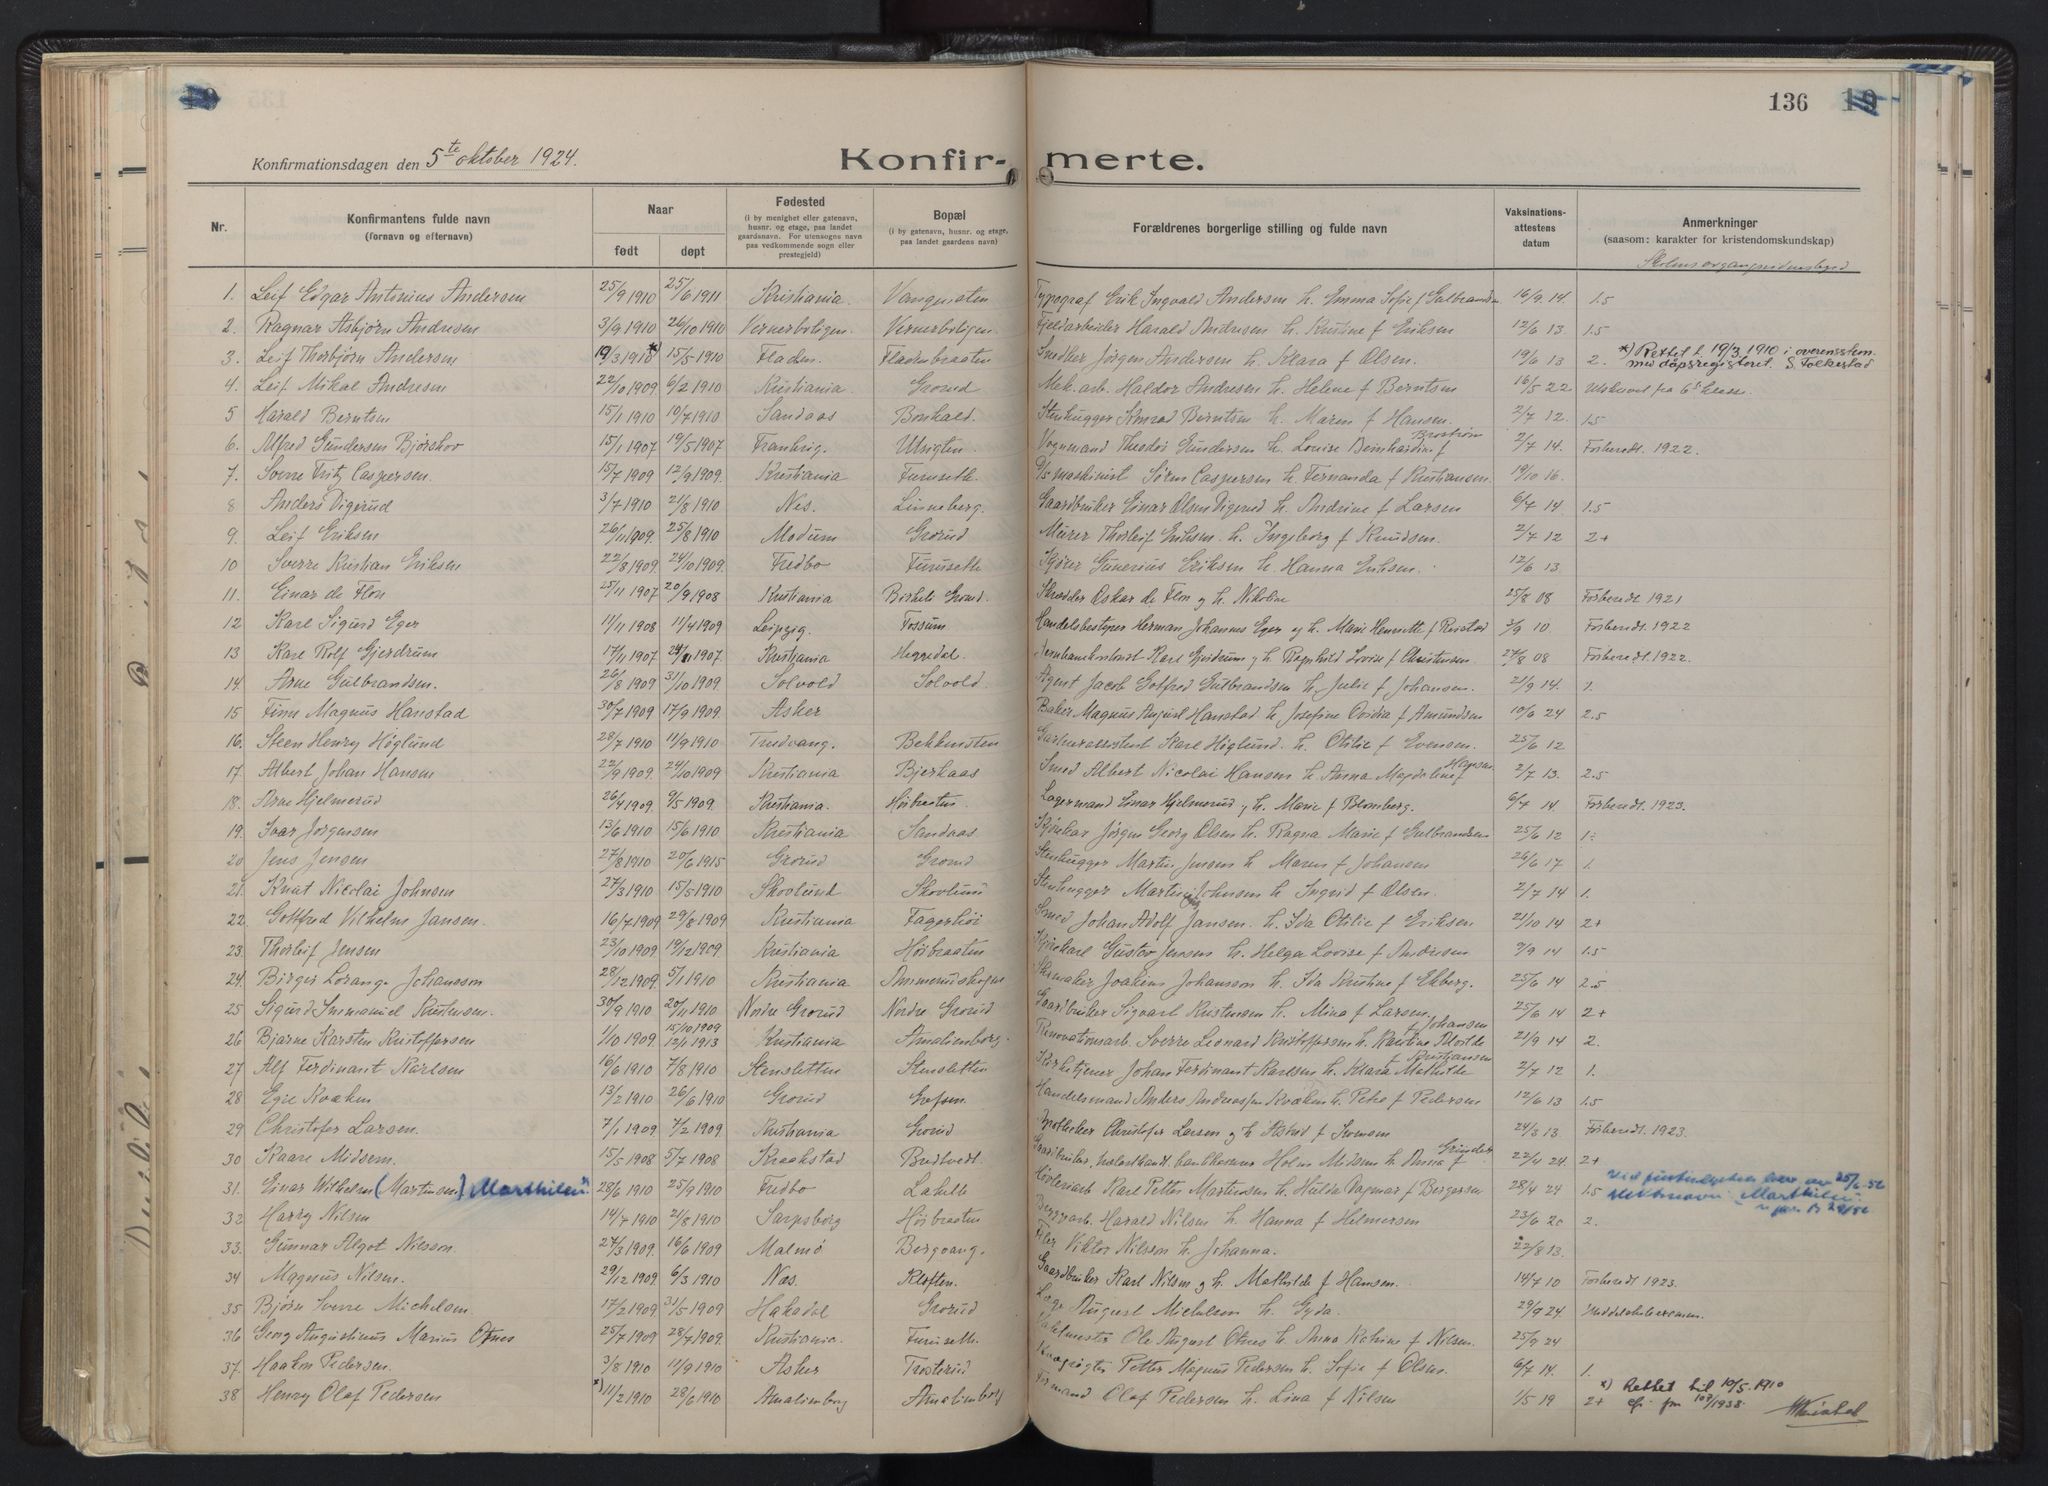 136
Konfirmationsdagen den 5te oktober 1924.
Konfir- merte.
Nr.
Konfirmantens fulde navn
(fornavn og efternavn)
Naar
født
døpt
Fødested
(i by menighet eller gatenavn,
husnr. og etage, paa landet
gaardsnavn. For utensogns navn
paa vedkommende sogn eller
prestegjeld)
Bopæl
(i by gatenavn, husnr. og etage,
paa landet gaardens navn)
Forældrenes borgerlige stilling og fulde navn
Vaksinations-
attestens
datum
Anmerkninger
(saasom: karakter for kristendomskundskap)
1. Leif Edgar Antonius Andersen 25/9 1910 25/6 1911 Kristiania. Typograf Erik Ingvald Andersen h. Emma Sofie f Gulbrandsen 16/9 14. 1.5
2. Ragnar Asbjørn Andresen 3/9 1910 26/10 1910 Vernerboligen. Vernerboligen. Fjeldarbeider Harald Andresen h. Kristine f Eriksen 12/6 13. 1.5
3. Leif Thorbjørn Andersen 19/3 1910 *) 15/5 1910 Fladen. Fladenbraaten Snedker Jørgen Andersen h. Klara f Olsen. 19/6 13 2. *) Rettet t. 19/3 1910 i overensstem.
med dåpsregisteret. S. Folkestad
4. Leif Mikal Andresen 22/10 1909 6/2 1910 Kristiania Grorud Mek. arb. Haldor Andresen h. Helene f Berntsen 16/5 22 Utskrevet fra 6te klasse.
5 Harald Berntsen 15/1 1910 10/7 1910 Sandaas Bonkald. Stenhugger Konrad Berntsen h. Maren f Hansen. 2/7 12. 1.5
6. Alfred Gundersen Bjørskov 15/1 1907 19/5 1907 Utsigten. Vognmand Theodor Gundersen h. Louise Bernhardine f Broström 2/7 14. Forberedt 1922.
7. Sverre Fritz Caspersen. 15/7 1909 12/9 1909. Kristiania Furuseth. D/S maskinist Sören Caspersen h. Fernanda f Kristiansen. 19/10 16.
8 Anders Digerud 3/7 1910 21/8 1910 Nes. Linneberg. Gaardbruker Einar Olsen Digerud h. Andrine f Larsen 6/7 14 1.5
9. Leif Eriksen 26/11 1909. 25/8 1910 Modum Grorud Murer Thorleif Eriksen. h. Ingeborg f Knudsen. 2/7 12 2+
10 Sverre Kristian Eriksen 22/8 1909. 24/10 1909. Fredbo Furuseth Kjører Gunerius Eriksen h. Hanna Eriksen. 12/6 13
11. Einar de Flon 25/11 1907 20/9 1908 Kristiania Birkeli Grorud. Skredder Oskar de Flon og h. Nikoline 25/8 08 Forberedt 1921
12 Karl Sigurd Eger 11/11 1908 11/4 1909 Leipzig. Fossum. Handelsbestyrer Herman Johannes Eger og h. Marie Henriette f 3/9 10. Forberedt. 1922
13 Kare Rolf Gjerdrum 17/11 1907 1907. Kristiania Heggedal. Karl Gjerdrum og h. Ragnhild Lovise f Christensen. 27/8 08 Forberedt. 1922.
14. Arne Gulbrandsen. 26/8 1909 31/10 1909 Solvold Solvold. Agent Jacob Gotfred Gulbrandsen h. Julie f Johansen. 21/9 14. 1.
15 Finn Magnus Hanstad 30/7 1909 17/9 1909. Asker Baker Magnus August Hanstad h. Josefine Ovidia f Amundsen 10/6 24 2.5
16. Steen Henry Höglund 28/7 1910 11/9 1910 Trudvang. Bekkensten Karl Höglund. h. Otilie f Evensen. 25/6 12
17. Albert Johan Hansen 22/9 1909. 24/10 1909 Kristiania Bjerkaas Smed Albert Nicolai Hansen h. Anna Magdaline f Hansen 2/7 13. 2.5
18. Arne Hjelmerud 26/4 1909. 9/5 1909. Kristiania. Høibraaten. Lagermand Einar Hjelmerud og h. Marie f Blomberg. 6/7 14 Forberedt. 1923.
19. Ivar Jørgensen 13/6 1910 15/6 1910 Kristiania Sandaas Jørgen Georg Olsen h. Ragna Marie f Gulbrandsen 25/6 12 1÷
20 Jens Jensen 27/8 1910 20/6 1915 Grorud Grorud Stenhugger Martin Jensen h. Maren f Johansen 26/6 17 1.
21. Knut Nicolai Johnsen 27/3 1910 15/5 1910 Skovlund Skovlund Stenhugger Martin Johnsen h. Ingrid f Olsen. 2/7 14 1.
22. Gotfred Vilhelm Jansen. 16/7 1909 29/8 1909 Kristiania Fagerhøi Smed Johan Adolf Jansen. h. Ida Otilie f Eriksen 21/10 14 2+
23. Thorleif Jensen 23/10 1909 19/12 1909 Kristiania Høibraaten Gustav Jensen h. Helga Lovise f Andresen 7/9 14 1.5
24. Birger Lorang. Johansson 28/12 1909. 5/1 1910 Kristiania Ammerudskogen Skomaker Joakim Johansson h. Ida Kristine f Ekberg. 25/6 14 2.5
25 Sigurd Immanuel Kristensen. 30/9 1910 20/11 1910 Nordre Grorud Nordre Grorud Gaardbruker Sigvart Kristensen h. Mina f Larsen. 25/6 14 2+
26 Bjarne Karsten Kristoffersen 1/10 1909. 15/10 1909
12/1 1913 Kristiania Amalienborg. Renovationsarb. Sverre Leonard Kristoffersen h. Kristine Klotilde f Johansen 21/9 14 2.
27 Alf Ferdinant Karlsen 16/6 1910 7/8 1910 Stensletten Stensletten Kirketjener Johan Ferdinant Karlsen h. Klara Mathilde f Kristiansen 2/7 12 1.
28 Egil Kvæken 13/2 1910 26/6 1910 Grorud Grefsen. Handelsmand Anders Andreassen Kvæken h. Petra f Pedersen 12/6 13 1.5
29 Christofer Larsen. 7/1 1909. 7/2 1909 Kristiania Grorud Christofer Larsen og h. Astrid f 24/3 13. Forberedt. 1923.
30 Kaare Midsem. 15/5 1908 5/7 1908 Kraakstad Bredtvedt. Holm Midsem h. Anna f Grinder 22/4 24. 2+
31. Einar Wilhelm (Martinsen) Marthilin" 28/6 1910 25/9 1910 Fredbo Lakelle Karl Petter Martinsen h. Hulda Dagmar f Bergersen 28/4 24 1.5 av 25/6 52
slektsnavn: Marthilin.
32 Harry Nilsen 14/7 1910 21/8 1910 Sarpsborg Høibraaten Harald Nilsen h. Hanna f Helmersen 23/6 20 2.
33. Gunnar Algot Nilsson. 27/3 1909. 16/6 1909 Malmö Bergvang. Viktor Nilsson h. Johanna. 22/8 13.
34 Magnus Nilsen. 29/12 1909. 6/3 1910 Nes. Kløften. Gaardbruker Karl Nilsen og h. Mathilde f Hansen. 14/7 10 Forberedt 1923.
35 Bjørn Sverre Michelsen. 17/2 1909. 31/5 1909 Hakadal Grorud August Michelsen h. Gyda. 29/9 24. Middelskoleeksamen.
36 Georg Augustinus Marius Otnes 25/7 1909 28/7 1909. Kristiania. Furuseth. Ole August Otnes h. Anna Katrine f Nilsen. 25/9 24
37. Haakon Pedersen. 3/8 1910 11/9 1910 Asker Trosterud Petter Magnus Pedersen h. Sofie f Olsen. 6/7 14. 1.
38 Henry Olaf Pedersen *) 11/2 1910 28/6 1910 Amalienborg Amalienborg Formand Olaf Pedersen h. Lina f Nilsen 1/5 19 2+ *) Rettet til 10/5. 1910